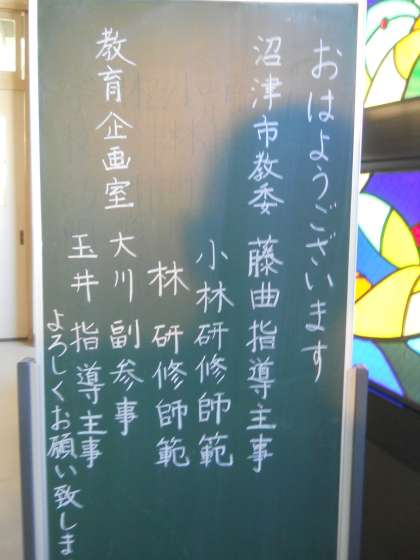 おはようございます
沼津市教委 藤曲指導主事
小林研修師範
林 研修師範
教育企画室 大川 副参事
玉井 指導主事
よろしくお願い致しま